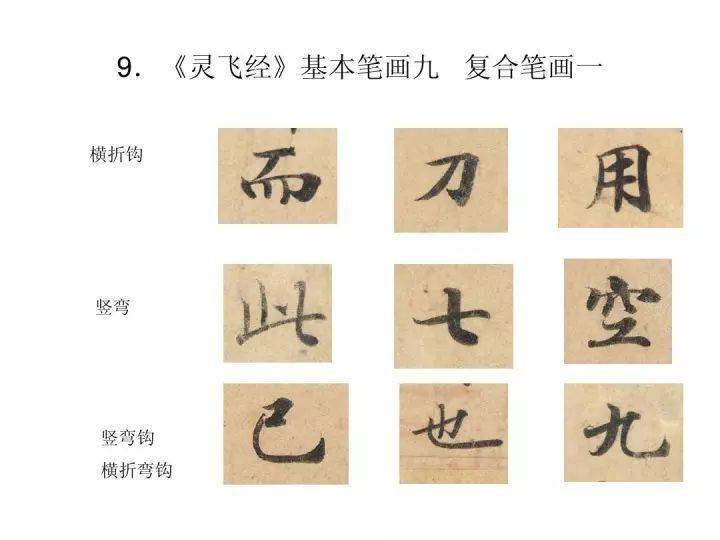 9. 《灵飞经》基本笔画九 复合笔画一
横折钩 而 刀 用
竖弯 此 七 空
竖弯钩
横折弯钩
已 也 九